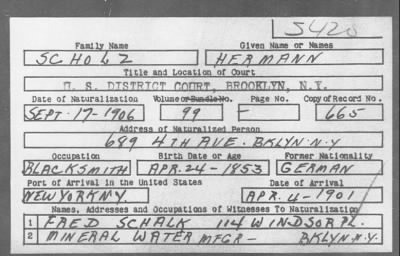 S420
Family Name Given Name or Names
SCHOLZ HERMANN
Title and Location of Court
U. S. DISTRICT COURT, BROOKLYN, N.Y.
Date of Naturalization Volume or Bundle No. Page No. Copy of Record No.
SEPT-17-1906 99 F 665
Address of Naturalized Person
689 4TH AVE. BKLYN-N.Y
Occupation Birth Date or Age Former Nationality
BLACKSMITH APR-24-1853 GERMAN
Port of Arrival in the United States Date of Arrival
NEW YORK N.Y. APR-4-1901
Names, Addresses and Occupations of Witnesses To Naturalization
1 FRED SCHALK 114 WINDSOR PL.
2 MINERAL WATER MFGR- BKLYN-N.Y.